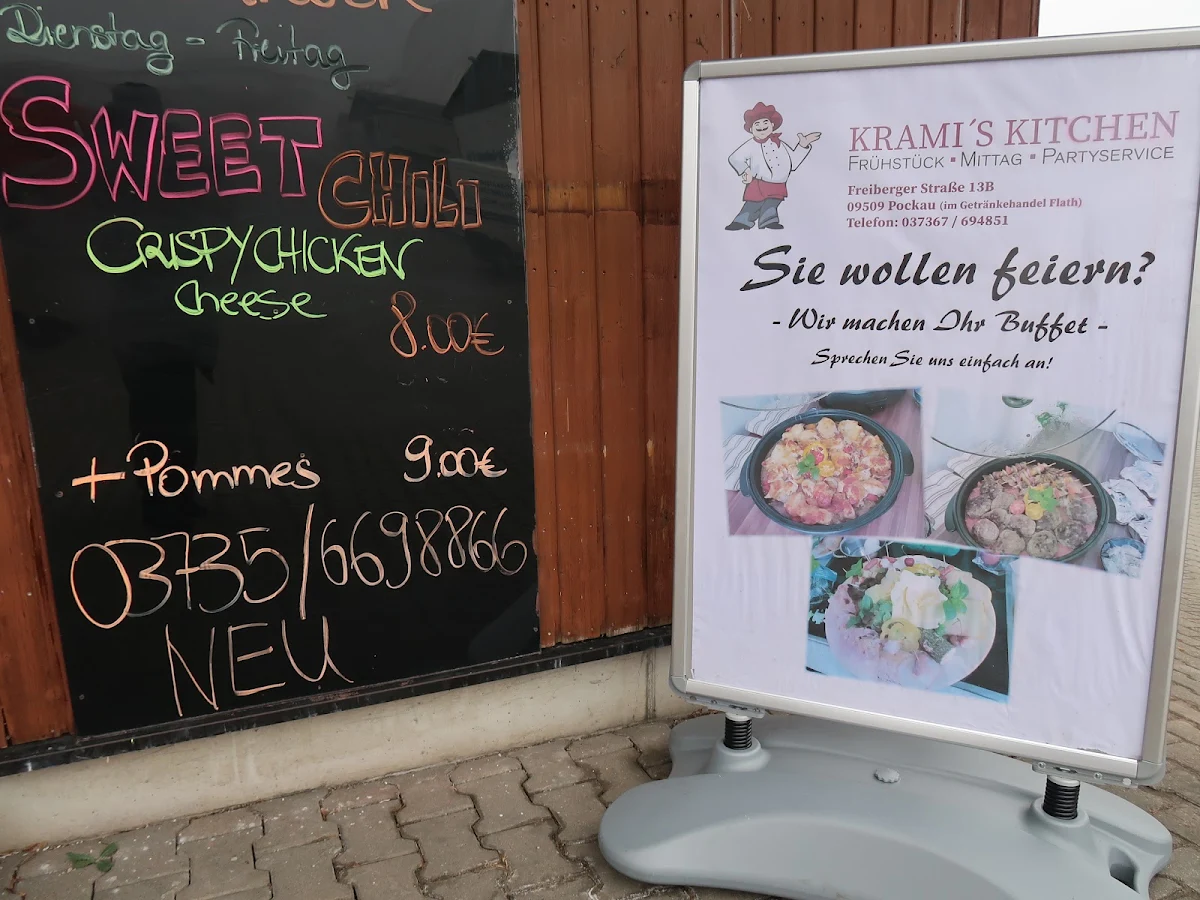 Dienstag - Freitag
SWEET CHILI
CRISPY CHICKEN
Cheese
8.00€
+ Pommes 9.00€
03735/6698866
NEU
KRAMI´S KITCHEN
FRÜHSTÜCK ▪ MITTAG ▪ PARTYSERVICE
Freiberger Straße 13B
09509 Pockau (im Getränkehandel Flath)
Telefon: 037367 / 694851
Sie wollen feiern?
- Wir machen Ihr Buffet -
Sprechen Sie uns einfach an!